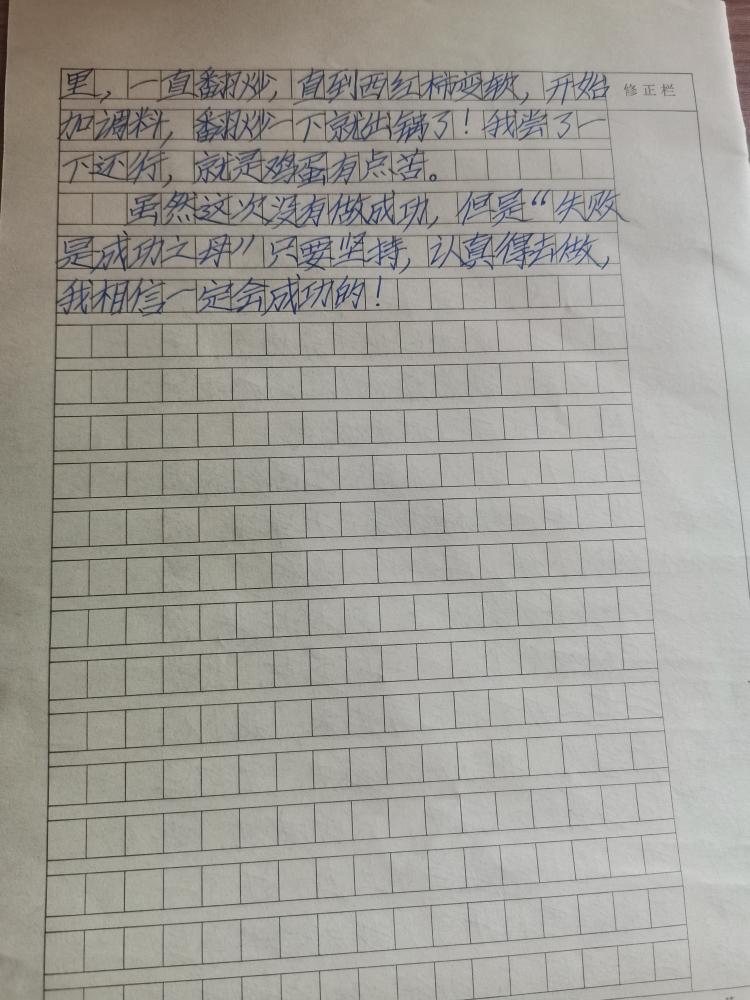 里，一直翻炒，直到西红柿变软，开始
修正栏
加调料，翻炒一下就出锅了！我尝了一
下还行，就是鸡蛋有点苦。
虽然这次没有做成功，但是“失败
是成功之母”只要坚持，认真得去做，
我相信一定会成功的！